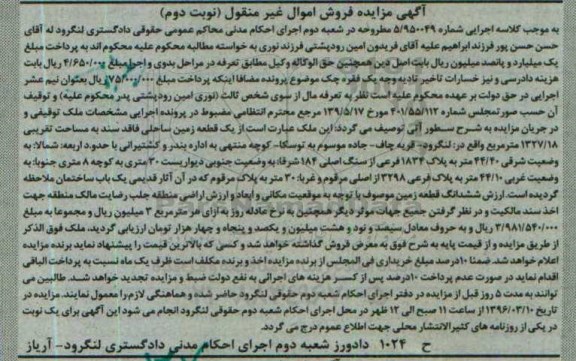 آگهی مزایده فروش اموال غیر منقول (نوبت دوم)
به موجب کلاسه اجرایی شماره 5/950049 مطروحه در شعبه دوم اجرای احکام مدنی محاکم عمومی حقوقی دادگستری لنگرود له آقای
حسن حسن پور فرزند ابراهیم علیه آقای فریدون امین رودپشتی فرزند نوری به خواسته مطالبه محکوم علیه محکوم اند به پرداخت مبلغ
یک میلیارد و پانصد میلیون ریال بابت اصل دین همچنین حق الوکاله وکیل مطابق تعرفه در مراحل بدوی و اجرا مبلغ 4/650/000 ریال بابت
هزینه دادرسی و نیز خسارات تاخیر تادیه وجه یک فقره چک موضوع پرونده مضافا اینکه پرداخت مبلغ 75/000/000 ریال بعنوان نیم عشر
اجرایی در حق دولت بر عهده محکوم علیه است نظر به تعرفه مال از سوی شخص ثالث (نوری امین رودپشتی پدر محکوم علیه) و توقیف
آن حسب صورتمجلس شماره 401/55/112 مورخ 139/5/17 مرجع محترم انتظامی مضبوط در پرونده اجرایی مشخصات ملک توقیفی و
در جریان مزایده به شرح سطور آتی توصیف می گردد: این ملک عبارت است از یک قطعه زمین ساحلی فاقد سند به مساحت تقریبی
1327/18 مترمربع واقع در: لنگرود- قریه چاف- جاده موسوم به توسکا- کوچه منتهی به اداره بندر و کشتیرانی با حدود اربعه: شمالا: به
وضعیت شرقی 44/40 متر به پلاک 1834 فرعی از سنگ اصلی 184 شرقا: به وضعیت جنوبی دیواریست 30 متری به کوچه 8 متری جنوبا: به
وضعیت غربی 44/10 متر به پلاک فرعی 3298 از اصلی مرقوم و غربا: 30 متر به پلاک مرقوم که در آن آثار قدیمی یک باب ساختمان ملاحظه
گردیده است. ارزش ششدانگ قطعه زمین موصوف با توجه به موقعیت مکانی و ابعاد و ارزش اراضی منطقه جلب رضایت مالک منطقه جهت
اخذ سند مالکیت و در نظر گرفتن جمیع جهات موثر دیگر همچنین به نرخ عادله روز به ازای هر مترمربع 3 میلیون ریال و مجموعا به مبلغ
3/981/540/000 ریال و به حروف معادل سیصد و نود و هشت میلیون و یکصد و پنجاه و چهار هزار تومان ارزیابی گردید، ملک فوق الذکر
از طریق مزایده و از قیمت پایه به شرح فوق به معرض فروش گذاشته خواهد شد و کسی که بالاترین قیمت را پیشنهاد نماید برنده مزایده
اعلام خواهد شد. ضمنا 10درصد مبلغ خریداری فی المجلس از برنده مزایده اخذ و برنده مکلف است ظرف یک ماه نسبت به پرداخت الباقی
اقدام نماید در صورت عدم پرداخت 10درصد پس از کسر هزینه های اجرائی به نفع دولت ضبط و مزایده تجدید خواهد شد. طالبین می
توانند به مدت 5 روز قبل از مزایده در دفتر اجرای احکام شعبه دوم حقوقی لنگرود حاضر شده و هماهنگی لازم را معمول نمایند. مزایده در
تاریخ 1396/03/10 از ساعت 11 صبح الی 12 ظهر در محل اجرای احکام شعبه دوم حقوقی لنگرود انجام می شود این آگهی برای یک نوبت
در یکی از روزنامه های کثیرالانتشار محلی جهت اطلاع عموم درج می گردد.
ح 1024 دادورز شعبه دوم اجرای احکام مدنی دادگستری لنگرود- آریاز